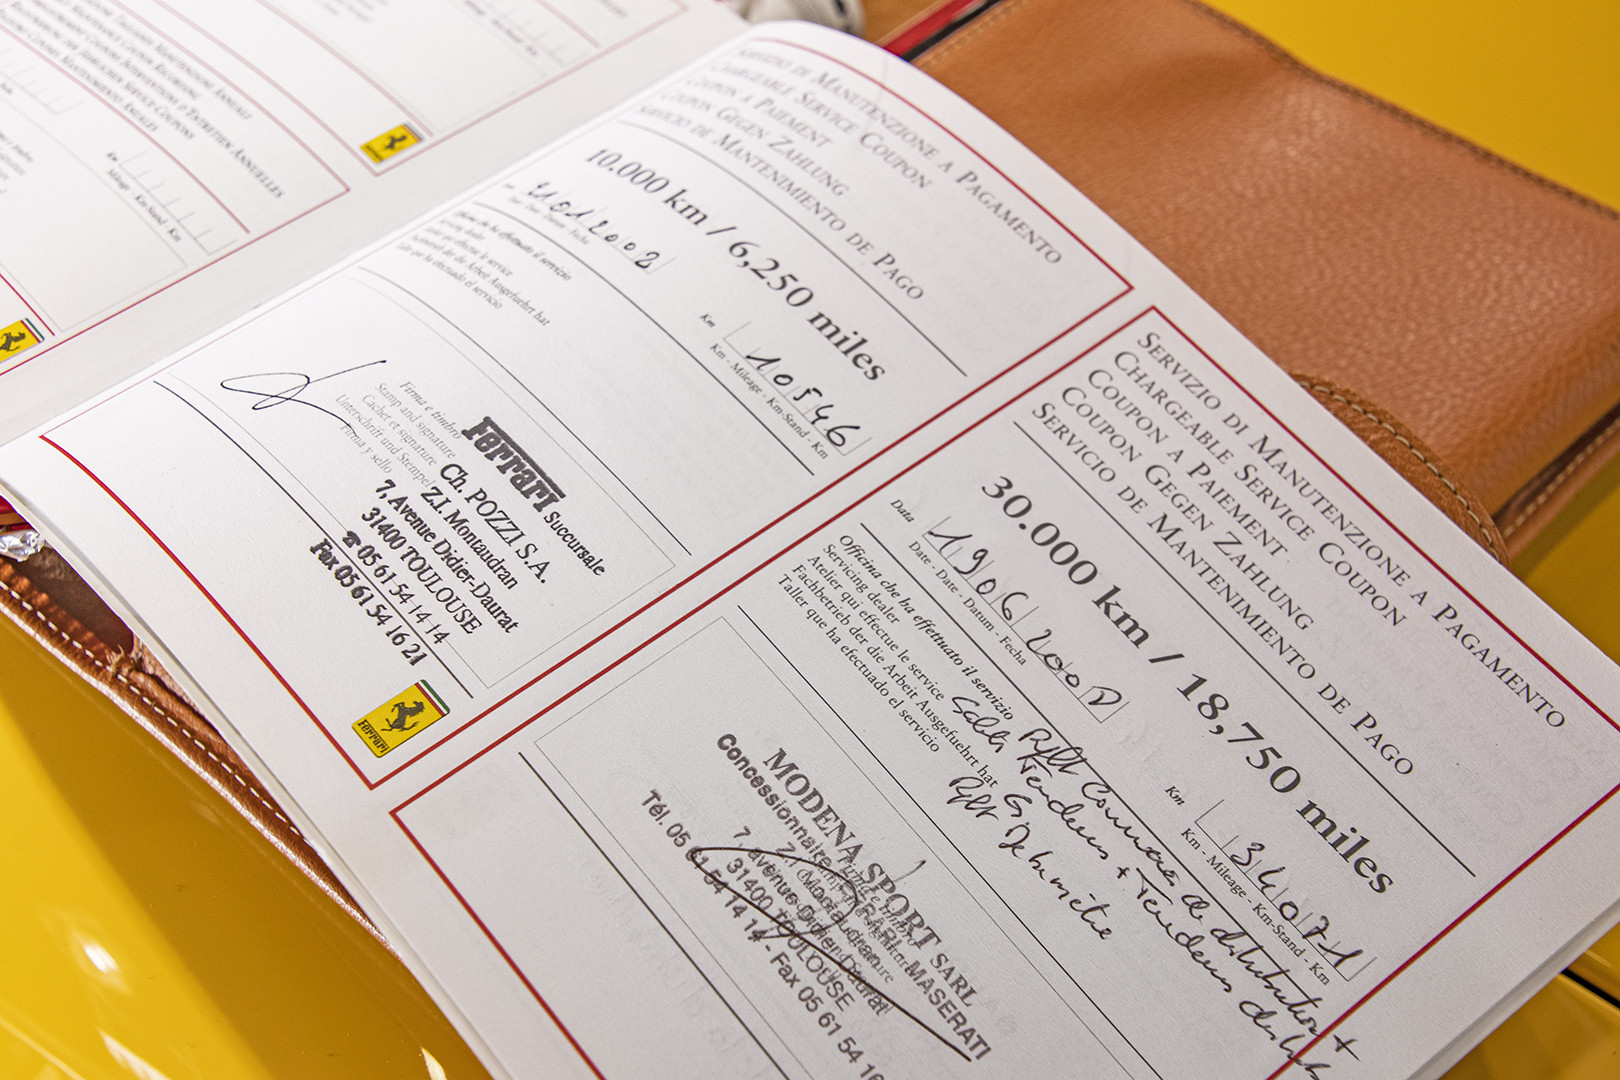 MANUTENZIONE ANNUALE
COUPON RECORDING
COUPONS INTERVENTIONS D'ENTRETIEN ANNUELLES
SERVICE-COUPONS
MANTENIMIENTO ANUALES
Km
Mileage - Km-Stand - Km
SERVIZIO DI MANUTENZIONE A PAGAMENTO
CHARGEABLE SERVICE COUPON
COUPON A PAIEMENT
COUPON GEGEN ZAHLUNG
SERVICIO DE MANTENIMIENTO DE PAGO
10.000 km / 6,250 miles
Date - Date - Datum - Fecha
Km
10546
Km - Mileage - Km-Stand - Km
Officina che ha effettuato il servizio
Servicing dealer
Atelier qui effectue le service
Fachbetrieb der die Arbeit Ausgefuehrt hat
Taller que ha efectuado el servicio
Firma e timbro
Stamp and signature
Cachet et signature
Unterschrift und Stempel
Firma y sello
Ferrari Succursale
Ch. POZZI S.A.
Z.I. Montaudran
7, Avenue Didier-Daurat
31400 TOULOUSE
☎ 05 61 54 14 14
Fax 05 61 54 16 21
Ferrari
SERVIZIO DI MANUTENZIONE A PAGAMENTO
CHARGEABLE SERVICE COUPON
COUPON A PAIEMENT
COUPON GEGEN ZAHLUNG
SERVICIO DE MANTENIMIENTO DE PAGO
30.000 km / 18,750 miles
Data
Date - Date - Datum - Fecha
Km
34071
Km - Mileage - Km-Stand - Km
Officina che ha effettuato il servizio
Servicing dealer
Atelier qui effectue le service
Fachbetrieb der die Arbeit Ausgefuehrt hat
Taller que ha efectuado el servicio
Courroie de distribution +
Tendeurs +
MODENA SPORT SARL
Concessionnaire FERRARI MASERATI
Z.I. Montaudran
7 avenue Didier Daurat
31400 TOULOUSE
Tél. 05 61 54 14 14 - Fax 05 61 54 16